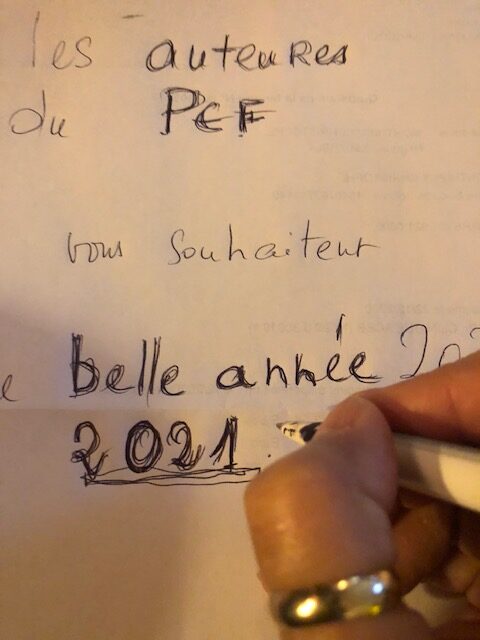 les auteures
du PEF
vous souhaitent
e belle année 202
2021.